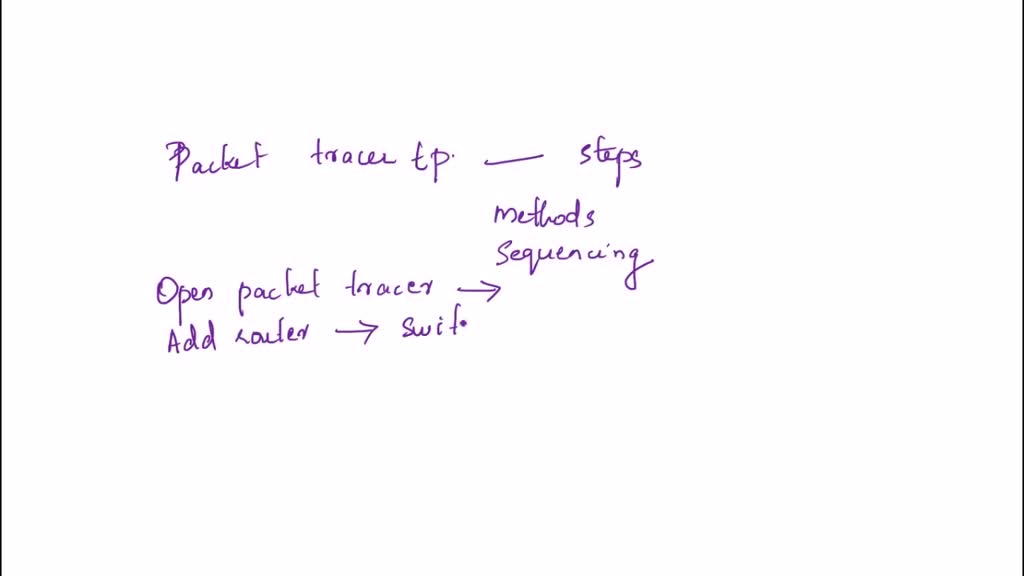 Packet tracer tp. — steps
methods
Sequencing
Open packet tracer →
Add router → swit